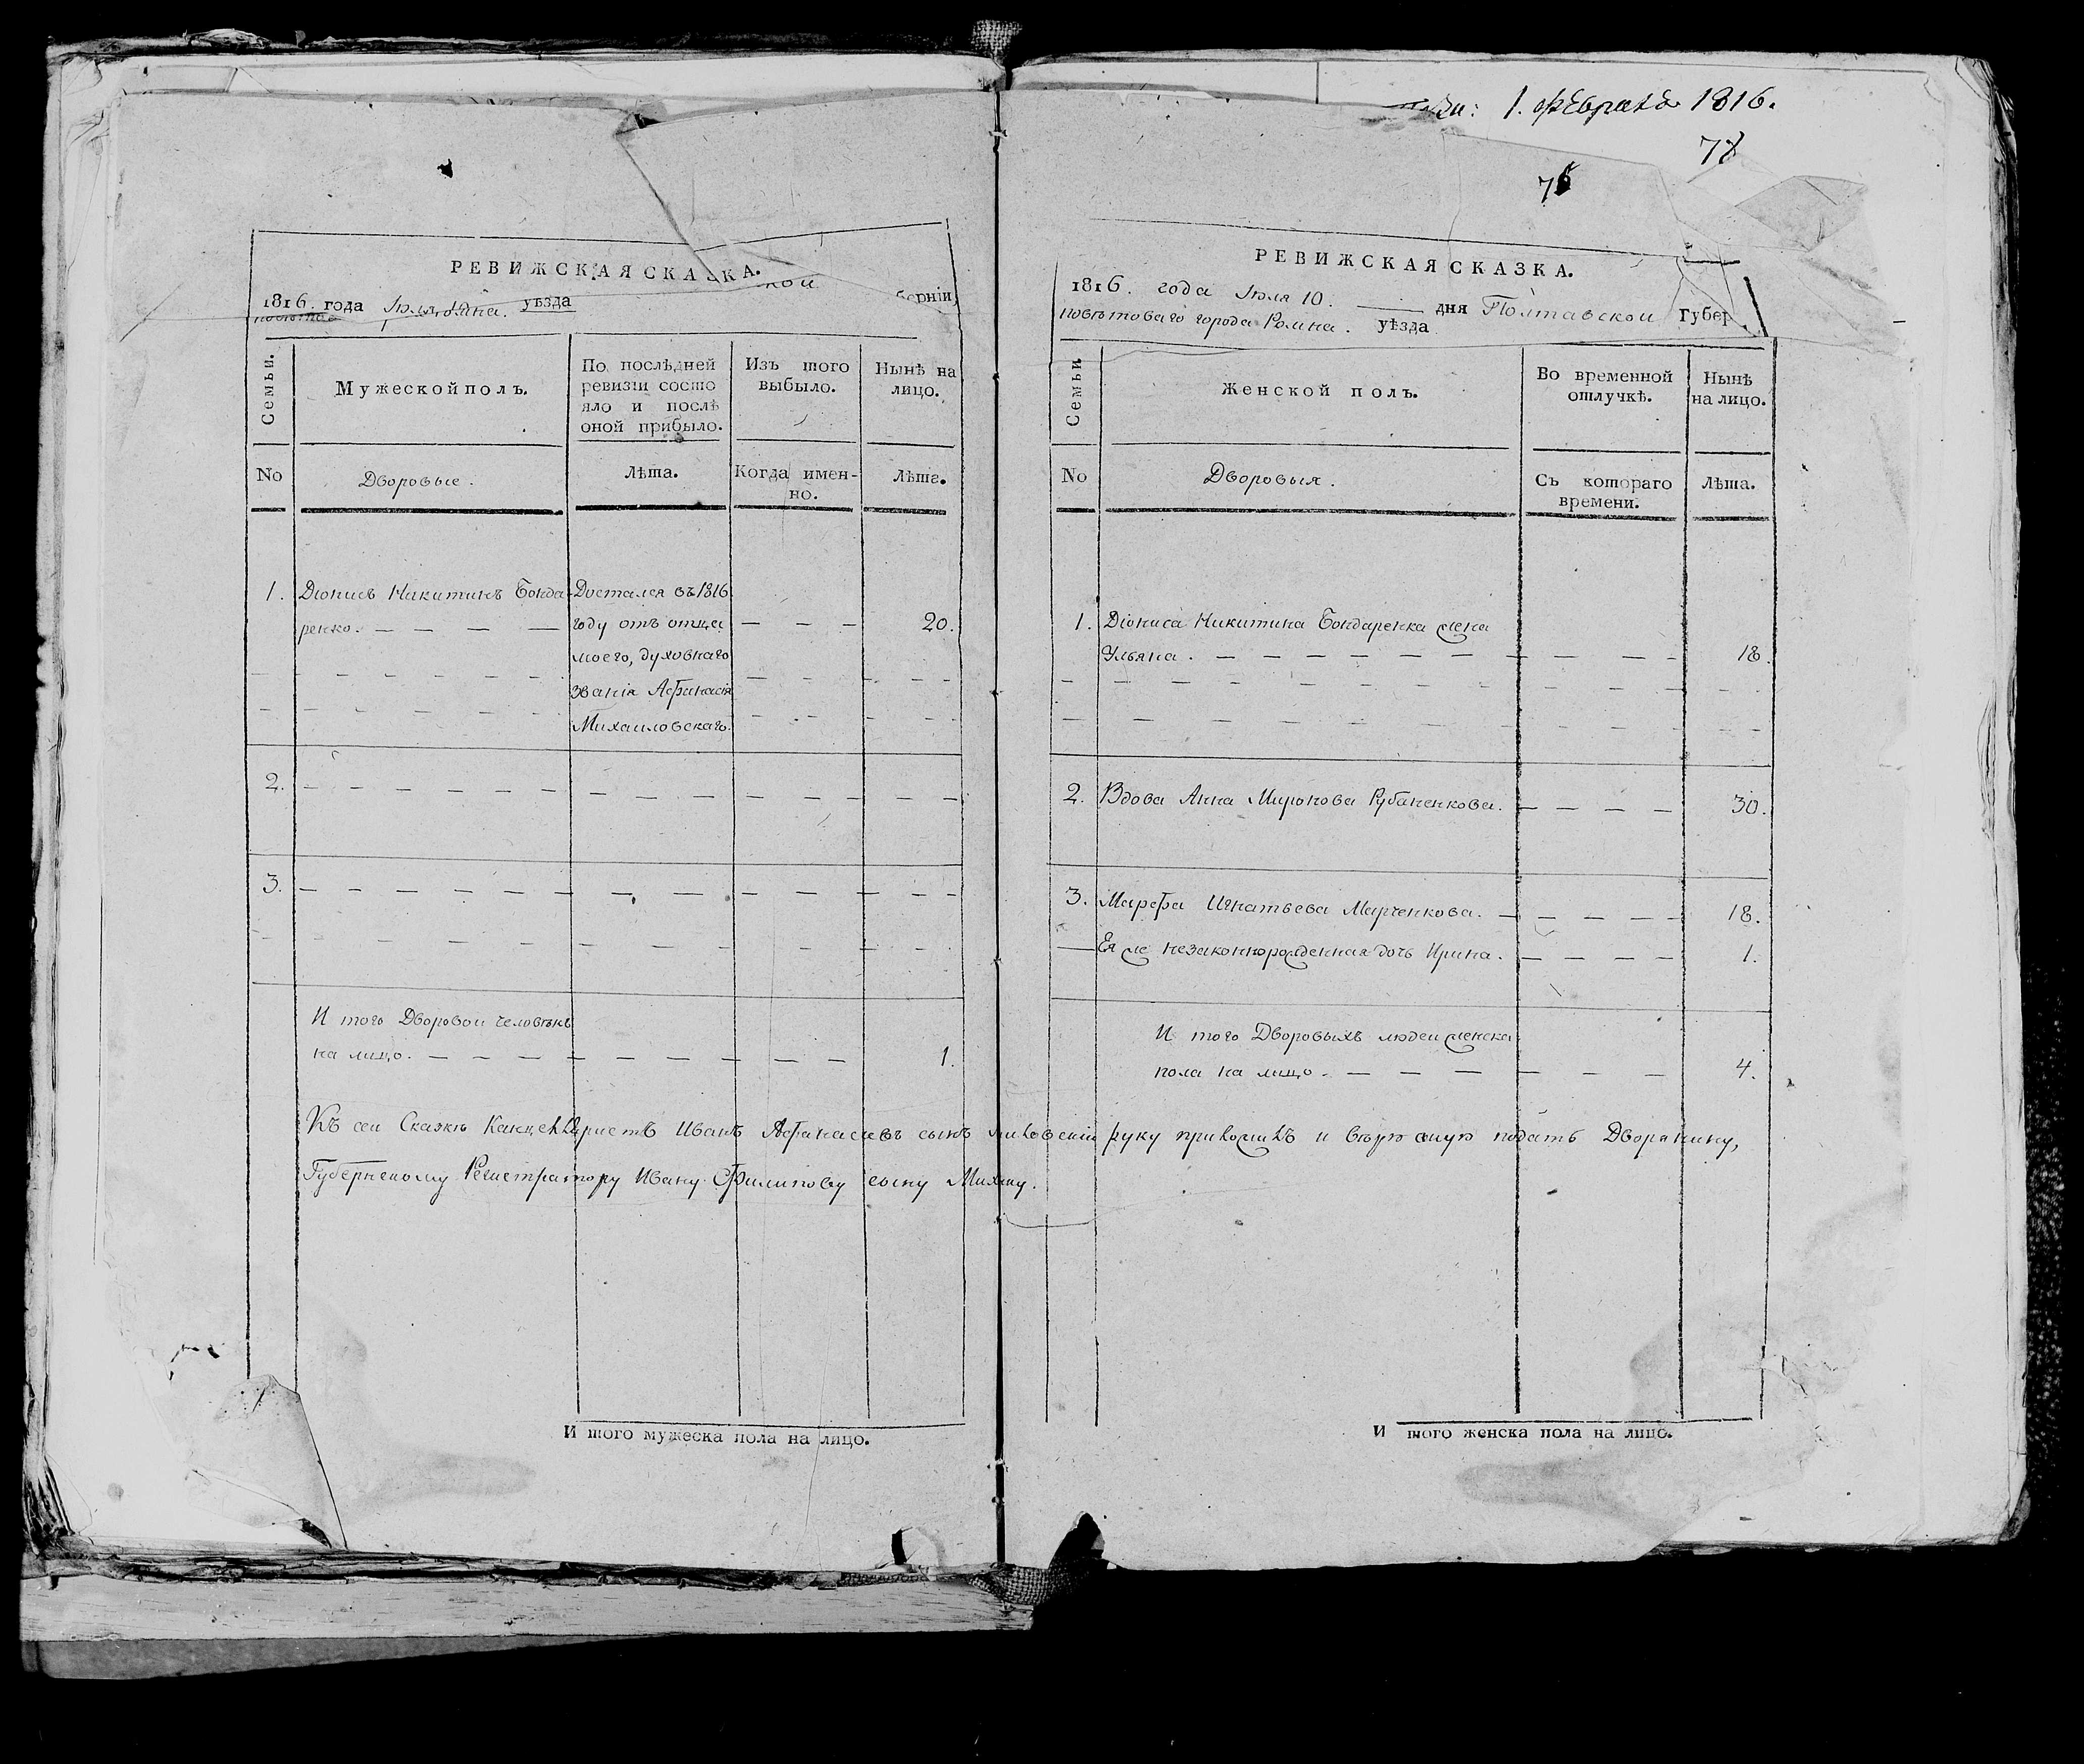 1. февраля 1816.
77
76
РЕВИЖСКАЯ СКАЗКА.
1816. года Іюля 10 дня. уѣзда берніи,
Семьи.
Мужеской полъ.
По послѣдней ревизіи состояло и послѣ оной прибыло.
Изъ того выбыло.
Нынѣ на лицо.
No
Дворовые.
Лѣта.
Когда именно.
Лѣта.
1. Діонисъ Никитинъ Бонда Достался въ 1816
ренко. — — — — году отъ отца — — — 20.
моего, духовнаго
званія Афанасія
Михаиловскаго.
2.
3.
И того Дворовои человѣкъ
на лицо. — — — — — — — — 1.
РЕВИЖСКАЯ СКАЗКА.
1816. года Іюля 10. дня Полтавскои Губер
повѣтоваго города Ромна. уѣзда
Семьи
Женской полъ.
Во временной отлучкѣ.
Нынѣ на лицо.
No
Дворовыя.
Съ котораго времени.
Лѣта.
1. Діониса Никитина Бондаренка жена
Ульяна. — — — — — — — — — 18.
2. Вдова Анна Миронова Рубаненкова. — — — — 30.
3. Марфа Игнатьева Марченкова. — — — — — 18.
— Ея же незаконнорожденная дочь Ирина. — — — — 1.
И того Дворовыхъ людеи женска
пола на лицо. — — — — — — 4.
Къ сеи Сказкѣ Канцеляристъ Иванъ Афанасіевъ сынъ руку приложилъ и вѣрю оную подать Дворянину,
Губернскому Регистратору Ивану Филипову сыну
И того мужеска пола на лицо.
И того женска пола на лицо.